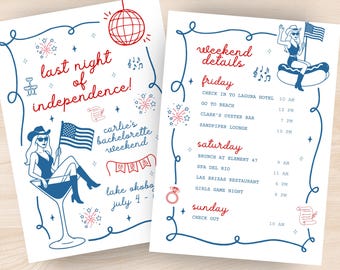 last night
of
independence!
carlie's
bachelorette
weekend
lake okoboji
july 4 -
weekend
details
friday
CHECK IN TO LAGUNA HOTEL 10 AM
GO TO BEACH 12 PM
CLARK'S OYSTER BAR 7 PM
SANDPIPER LOUNGE 10 PM
saturday
BRUNCH AT ELEMENT 47 9 AM
SPA DEL RIO 11 AM
LAS BRIZAS RESTAURANT 6 PM
GIRLS GAME NIGHT 8 PM
sunday
CHECK OUT 10 AM